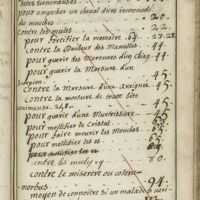 bêtes venimeuses
pour empecher un cheval dêtre incommodé
des mouches 20
contre les puces 22
pour fortifier la memoire 64. 27.28
contre la Douleur des Mamelles 44
pour guerir des Morsures d'un chien 44
pour guerir la Morsure d'un
Scorpion 45
contre la Morsure d'une araignée 45
contre la morsure de toute bête
venimeuse 45
pour guerir d'une Meurtrissure 45
pour mollifier le Cristal 55
pour faire mourir les Mouches 65
pour mollifier les os
pour mollifier les os
contre les 80
contre le miserere ou colera
morbus 94
moyen de connoître si un malade